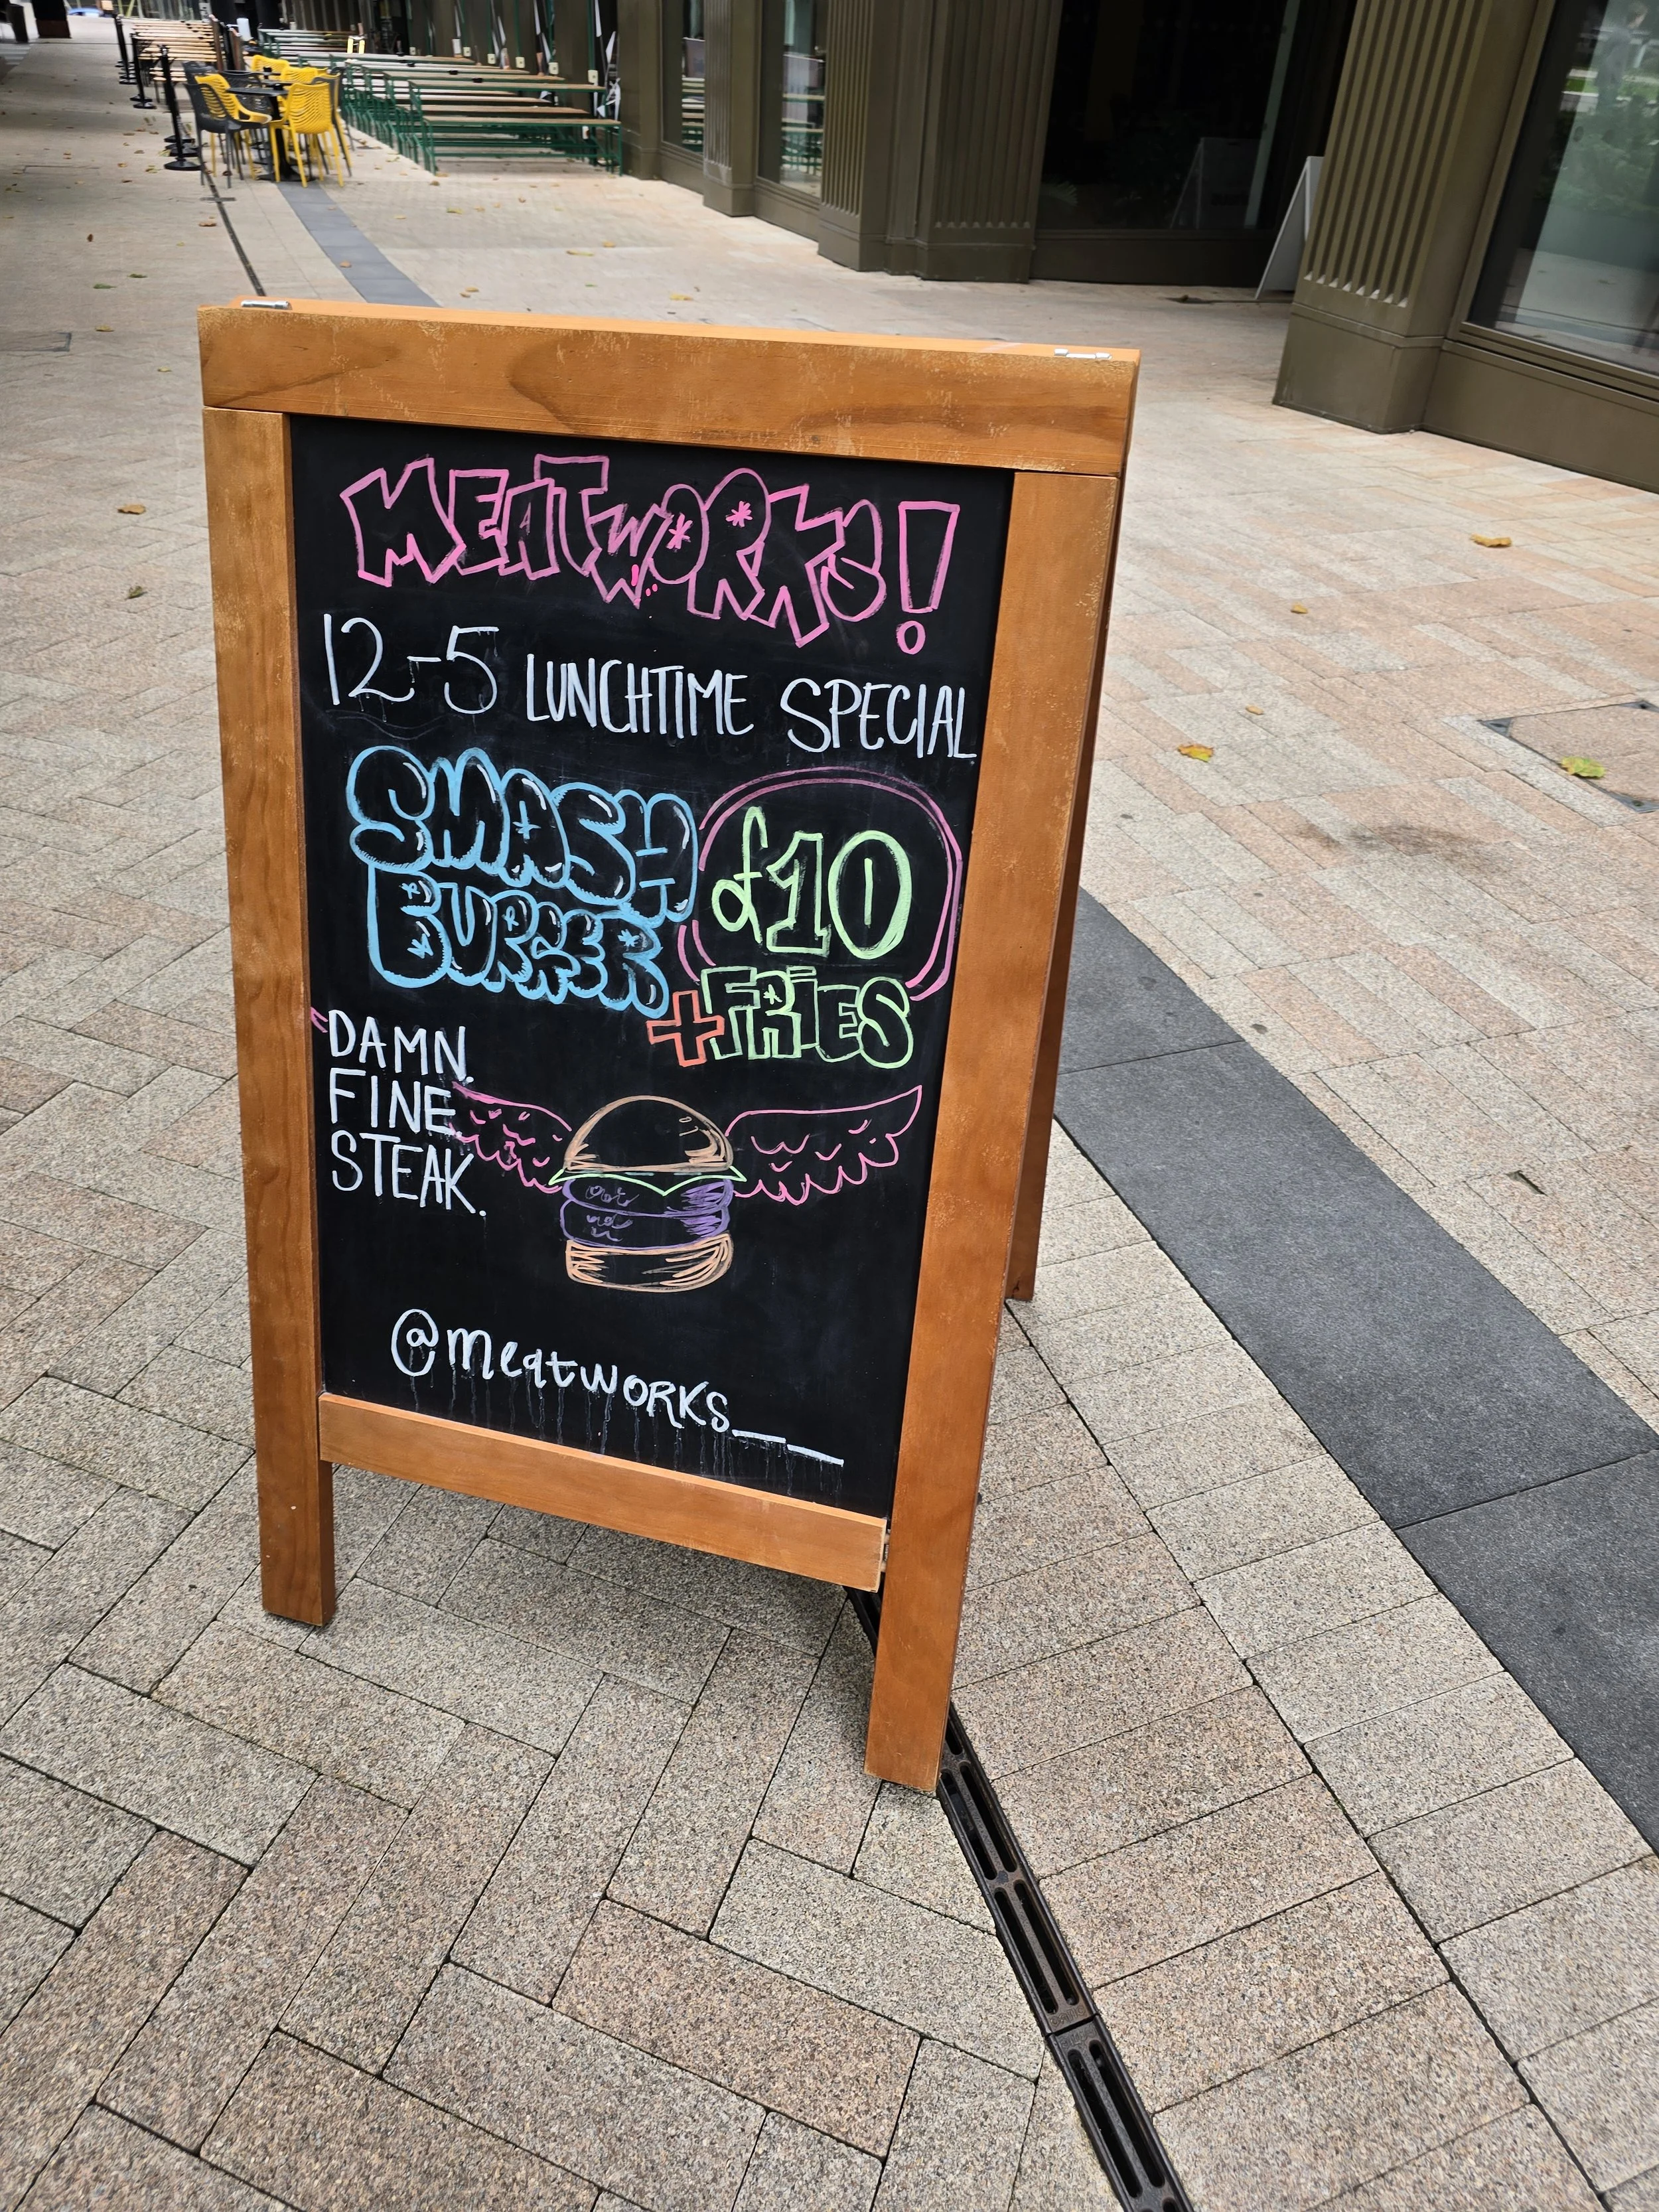 MEATWORKS!
12-5 LUNCHTIME SPECIAL
SMASH
BURGER
£10
+FRIES
DAMN.
FINE.
STEAK.
@meatwORKS__